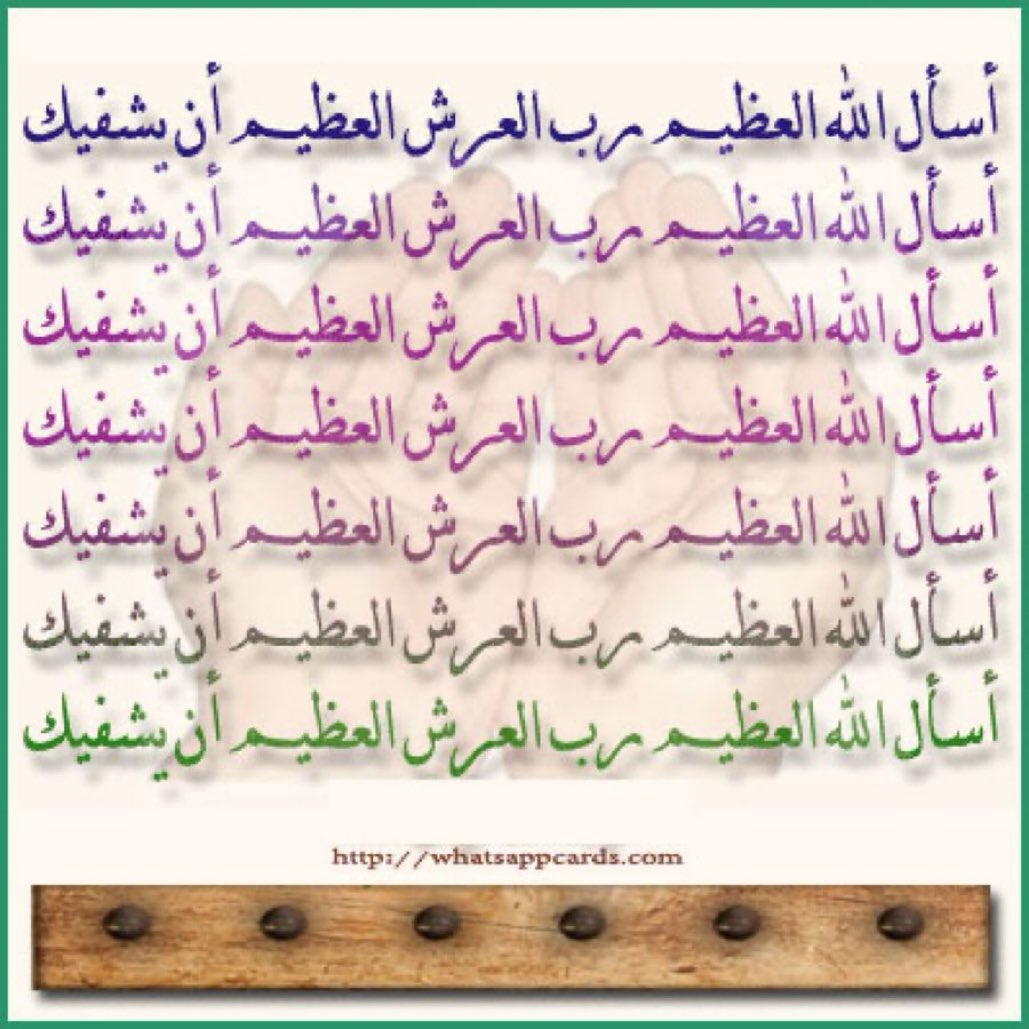 أسأل الله العظيم رب العرش العظيم أن يشفيك
أسأل الله العظيم رب العرش العظيم أن يشفيك
أسأل الله العظيم رب العرش العظيم أن يشفيك
أسأل الله العظيم رب العرش العظيم أن يشفيك
أسأل الله العظيم رب العرش العظيم أن يشفيك
أسأل الله العظيم رب العرش العظيم أن يشفيك
أسأل الله العظيم رب العرش العظيم أن يشفيك
http://whatsappcards.com